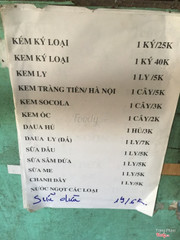 KÉM KÝ LOẠI 1 KÝ/25K
KEM KÝ LOẠI 1 KÝ 40K
KEM LY 1 LY /5K
KEM TRÀNG TIỀN/ HÀ NỘI 1 CÂY/5K
KEM SOCOLA 1 CÂY/3K
KEM ỐC 1 CÂY/2K
DAUA HỦ 1 HỦ/3K
DAUA LY (ĐÁ) 1 LY/7K
SỮA DÂU 1 LY/5K
SỮA SẦM DỨA 1 LY/5K
SỮA ME 1 LY/5K
CHANH DÂY 1 LY/5K
NƯỚC NGỌT CÁC LOẠI